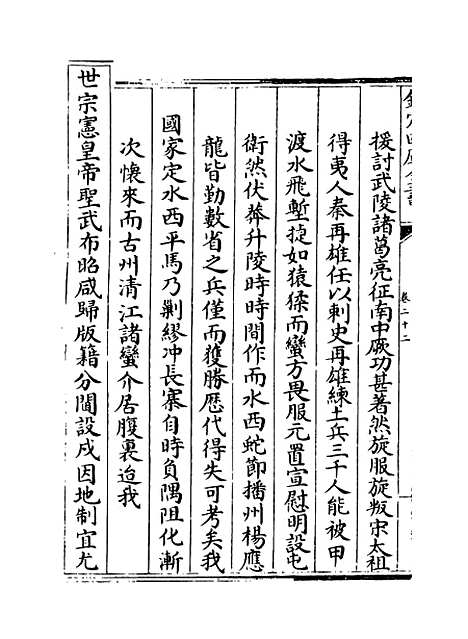 欽定四庫全書
卷二十二
援討武陵諸葛亮征南中厥功甚著然旋服旋叛宋太祖
得夷人秦再雄任以刺史再雄練土兵三千人能被甲
渡水飛塹捷如猿猱而蠻方畏服元置宣慰明設屯
衛然伏莽升陵時時間作而水西蛇節播州楊應
龍皆勤數省之兵僅而獲勝歴代得失可考矣我
國家定水西平馬乃剿繆冲長寨自時負隅阻化漸
次懷來而古州清江諸蠻介居腹裏迨我
世宗憲皇帝聖武布昭咸歸版籍分閫設戍因地制宜尤